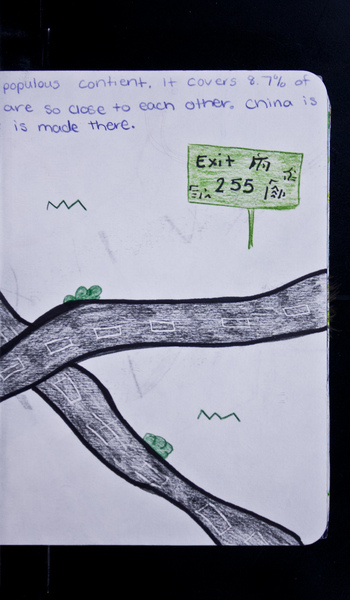 populous contient. It covers 8.7% of
are so close to each other. China is
is made there.
Exit
255